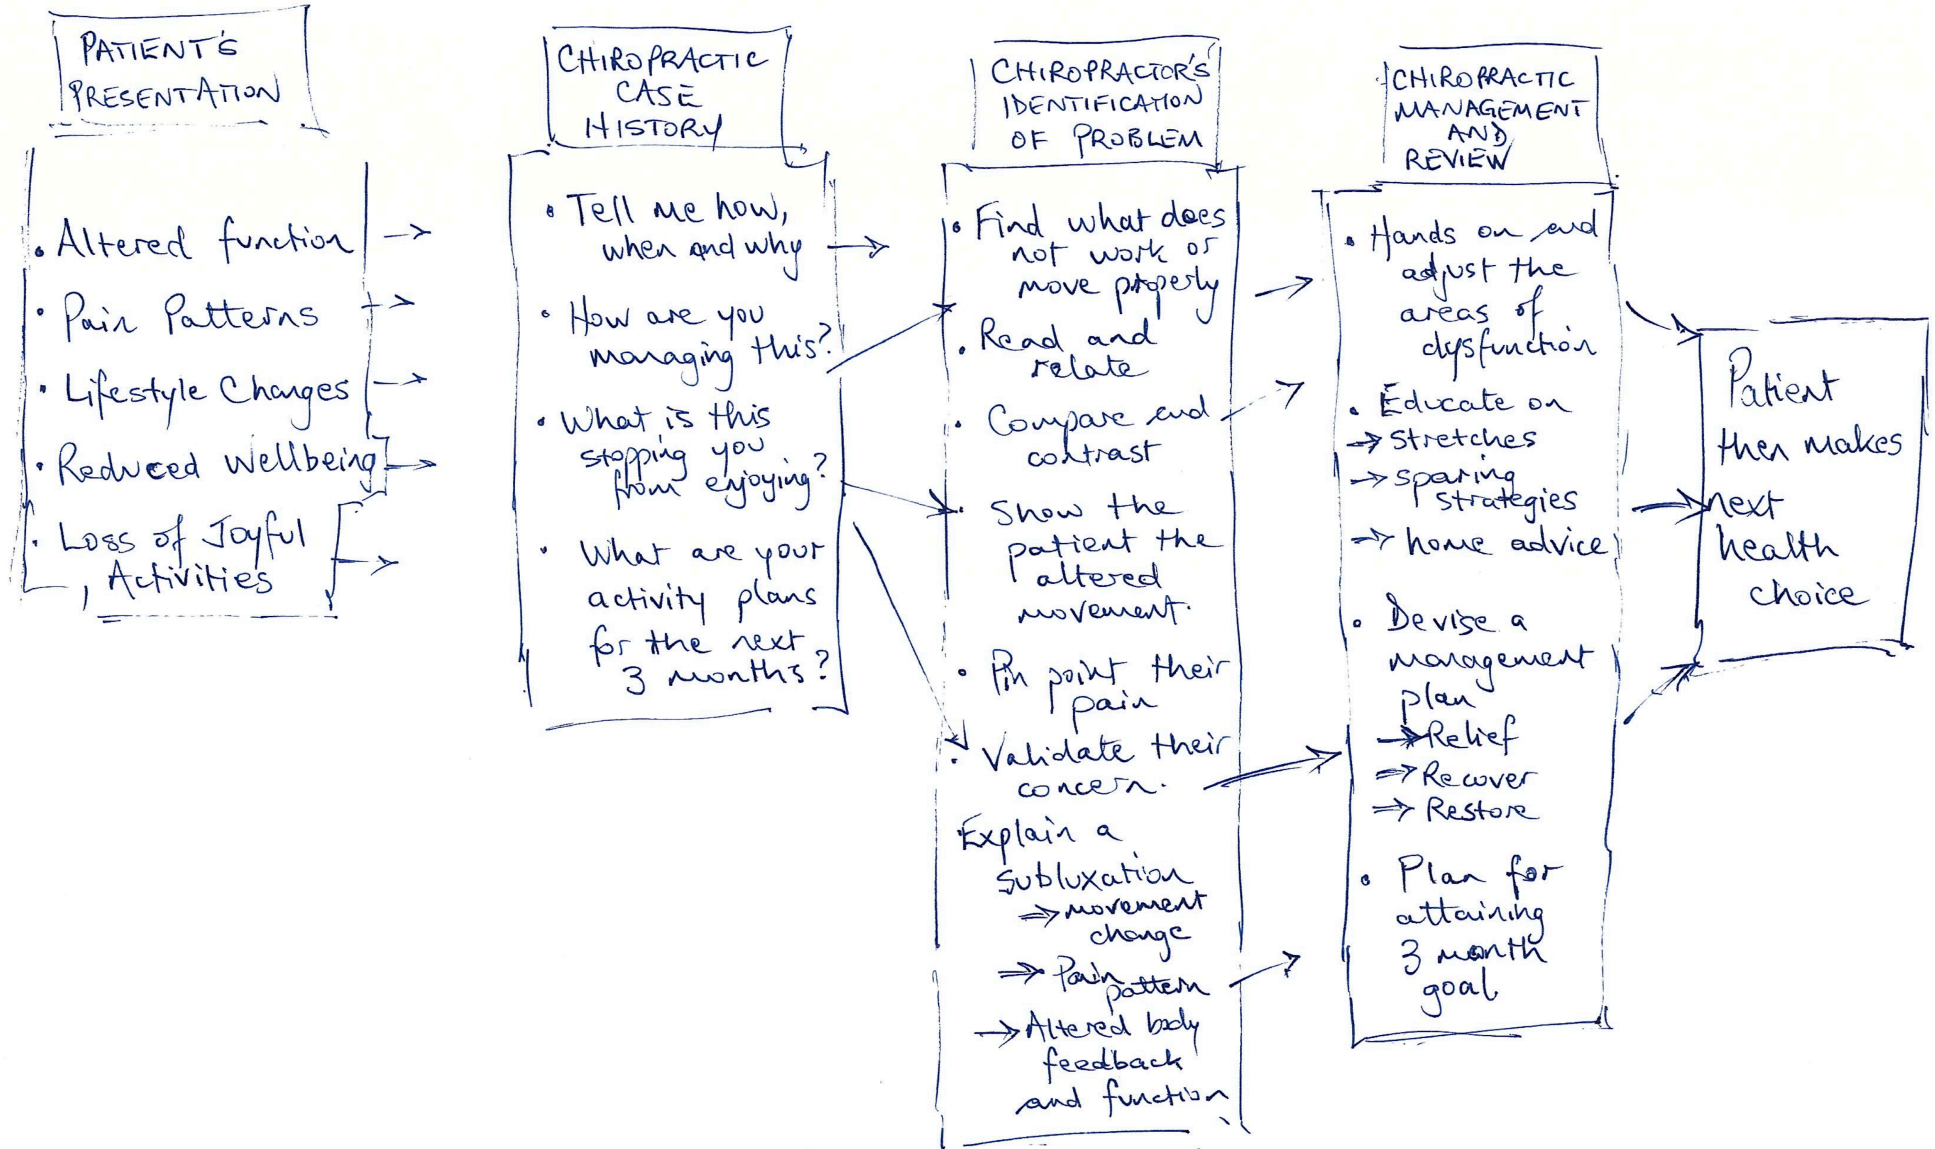 PATIENT'S
PRESENTATION
• Altered function →
• Pain Patterns →
• Lifestyle Changes →
• Reduced Wellbeing →
• Loss of Joyful
Activities →
CHIROPRACTIC
CASE
HISTORY
• Tell me how,
when and why →
• How are you
managing this?
• What is this
stopping you
from enjoying?
• What are your
activity plans
for the next
3 months?
CHIROPRACTOR'S
IDENTIFICATION
OF PROBLEM
• Find what does
not work or
move properly
• Read and
relate
• Compare and
contrast
• Show the
patient the
altered
movement.
• Pin point their
pain
• Validate their
concern.
• Explain a
subluxation
⇒ movement
change
⇒ Pain
pattern
→ Altered body
feedback
and function
CHIROPRACTIC
MANAGEMENT
AND
REVIEW
• Hands on and
adjust the
areas of
dysfunction
• Educate on
→ stretches
→ sparing
strategies
→ home advice
• Devise a
management
plan
→ Relief
⇒ Recover
⇒ Restore
• Plan for
attaining
3 month
goal.
Patient
then makes
next
health
choice